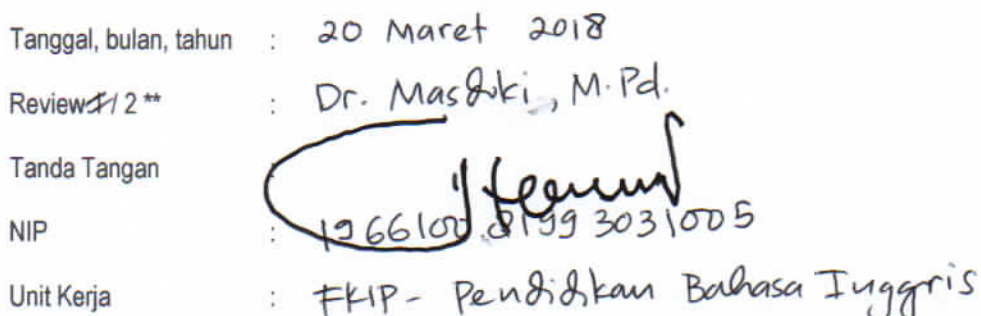 Tanggal, bulan, tahun : 20 Maret 2018
Review 1/ 2 ** : Dr. Masduki, M.Pd.
Tanda Tangan
NIP : 19661008199 3031005
Unit Kerja : FKIP - Pendidikan Bahasa Inggris